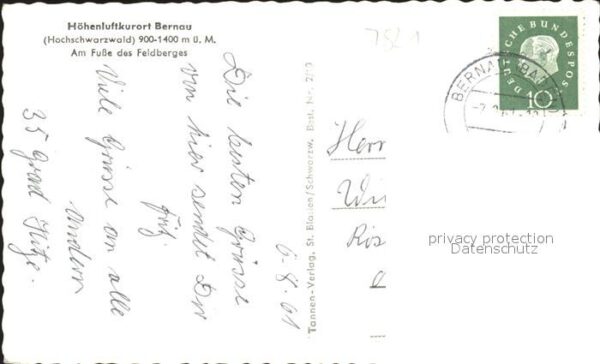 Höhenluftkurort Bernau
(Hochschwarzwald) 900-1400 m ü. M.
Am Fuße des Feldberges
7821
Die besten Grüsse
von hier sendet Dir
Fritz
Viele Grüsse an alle
andern
35 Grad Hitze.
6.8.61
Tannen-Verlag, St. Blasien/Schwarzw. Best. Nr.
Herr
DEUTSCHE BUNDESPOST
10
BERNAU
privacy protection
Datenschutz